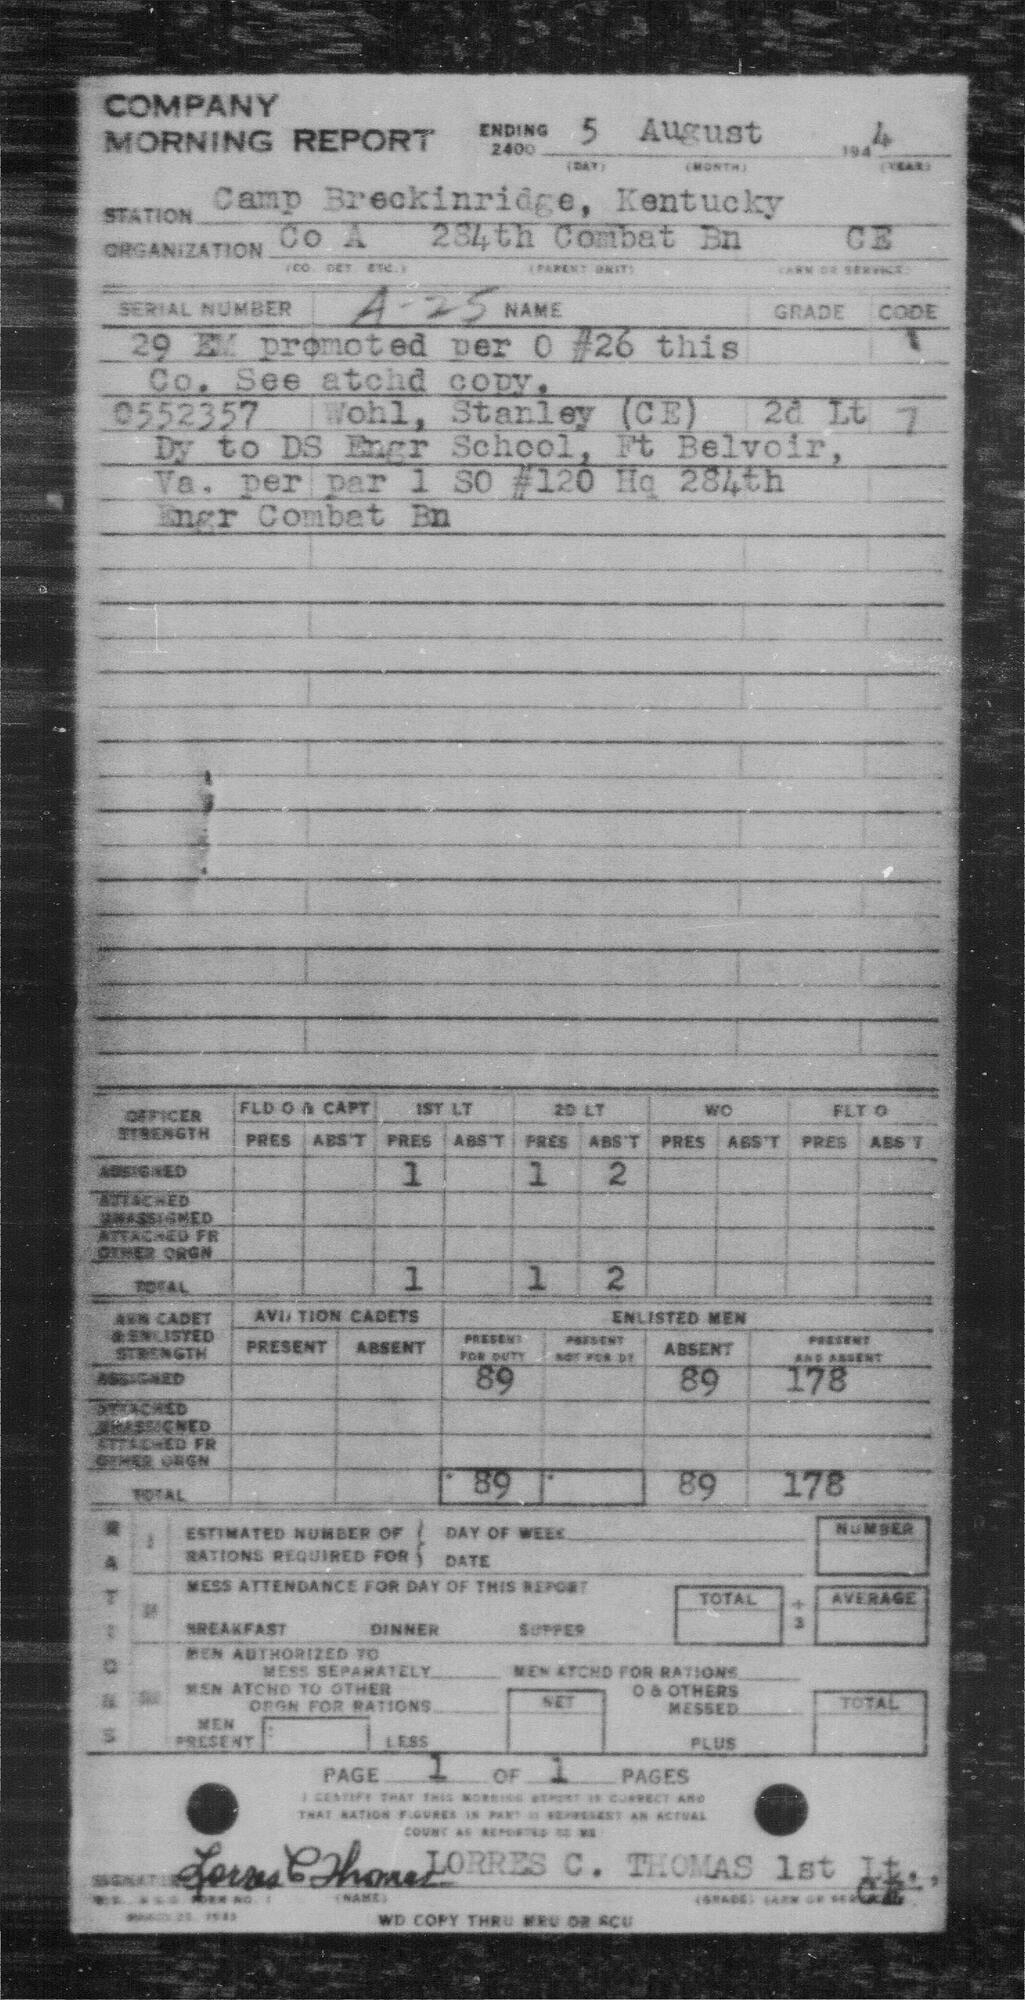 COMPANY
MORNING REPORT ENDING 2400 5 August 1944
(DAY) (MONTH) (YEAR)
STATION Camp Breckinridge, Kentucky
ORGANIZATION Co A 284th Combat Bn CE
(CO. DET. ETC.) (PARENT UNIT) (ARM OR SERVICE)
SERIAL NUMBER A-25 NAME GRADE CODE
29 EM promoted per O #26 this
Co. See atchd copy.
O552357 Wohl, Stanley (CE) 2d Lt 7
Dy to DS Engr School, Ft Belvoir,
Va. per par 1 SO #120 Hq 284th
Engr Combat Bn
OFFICER STRENGTH FLD O & CAPT 1ST LT 2D LT WO FLT O
PRES ABS'T PRES ABS'T PRES ABS'T PRES ABS'T PRES ABS'T
ASSIGNED 1 1 2
ATTACHED
UNASSIGNED
ATTACHED FR
OTHER ORGN
TOTAL 1 1 2
AVN CADET & ENLISTED STRENGTH AVIATION CADETS ENLISTED MEN
PRESENT ABSENT PRESENT FOR DUTY PRESENT NOT FOR DY ABSENT PRESENT AND ABSENT
ASSIGNED 89 89 178
ATTACHED
UNASSIGNED
ATTACHED FR
OTHER ORGN
TOTAL 89 89 178
RATIONS
ESTIMATED NUMBER OF DAY OF WEEK NUMBER
RATIONS REQUIRED FOR DATE
MESS ATTENDANCE FOR DAY OF THIS REPORT TOTAL ÷ 3 AVERAGE
BREAKFAST DINNER SUPPER
MEN AUTHORIZED TO
MESS SEPARATELY MEN ATCHD FOR RATIONS
MEN ATCHD TO OTHER O & OTHERS
ORGN FOR RATIONS NET MESSED TOTAL
MEN
PRESENT LESS PLUS
PAGE 1 OF 1 PAGES
I CERTIFY THAT THIS MORNING REPORT IS CORRECT AND
THAT RATION FIGURES IN PART II REPRESENT AN ACTUAL
COUNT AS REPORTED TO ME
SIGNATURE Lorres C Thomas LORRES C. THOMAS 1st Lt., CE
(NAME) (GRADE) (ARM OR SERVICE)
W.D., A.G.O. FORM NO. 1
WD COPY THRU MRU OR SCU